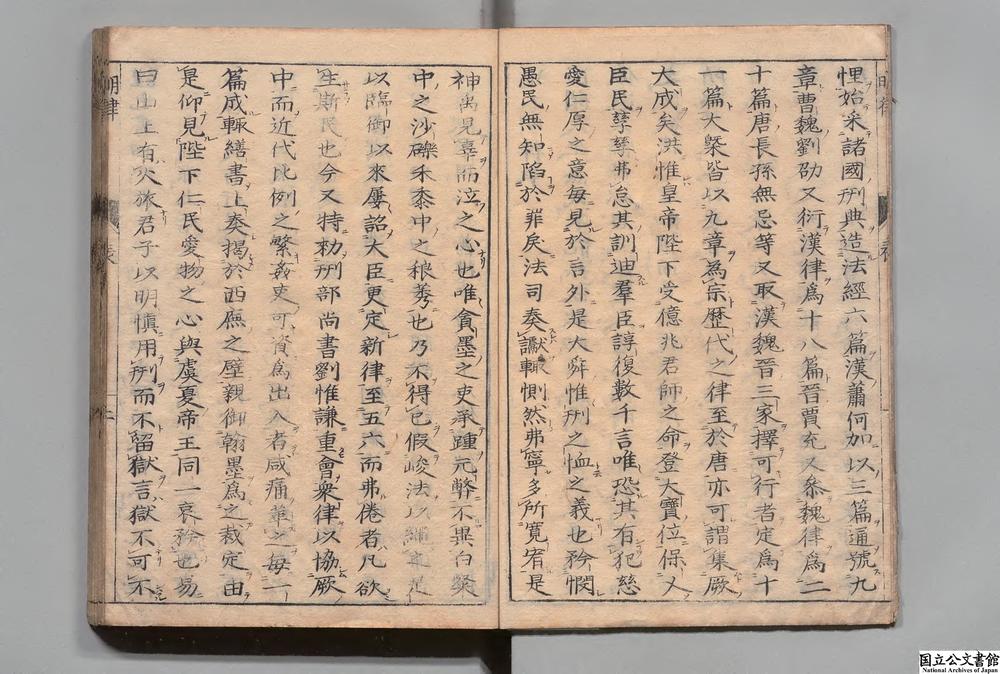 悝始采諸國刑典造法經六篇漢蕭何加以三篇通號九
章曹魏劉劭又衍漢律爲十八篇晉賈充又叅魏律爲二
十篇唐長孫無忌等又取漢魏晉三家擇可行者定爲十
二篇大槩皆以九章為宗歷代之律至於唐亦可謂集厥
大成矣洪惟皇帝陛下受億兆君師之命登大寶位保乂
臣民孳孳弗怠其訓迪羣臣諄復數千言唯恐其有犯慈
愛仁厚之意每見於言外是大舜惟刑之恤之義也矜憫
愚民無知陷於罪戾法司奏讞輙惻然弗寧多所寬宥是
神禹見辜而泣之心也唯貪墨之吏承踵元弊不異白粲
中之沙礫禾黍中之稂莠也乃不得已假峻法以繩之是
以臨御以來屢詔大臣更定新律至五六而弗倦者凡欲
生斯民也今又特勑刑部尚書劉惟謙重會衆律以協厥
中而近代比例之繁姦吏可資爲出入者咸痛革之每一
篇成輙繕書上奏揭於西廡之壁親御翰墨爲之裁定由
是仰見陛下仁民愛物之心與虞夏帝王同一哀矜也易
曰山上有火旅君子以明慎用刑而不留獄言獄不可不
明律
表
二
国立公文書館
National Archives of Japan